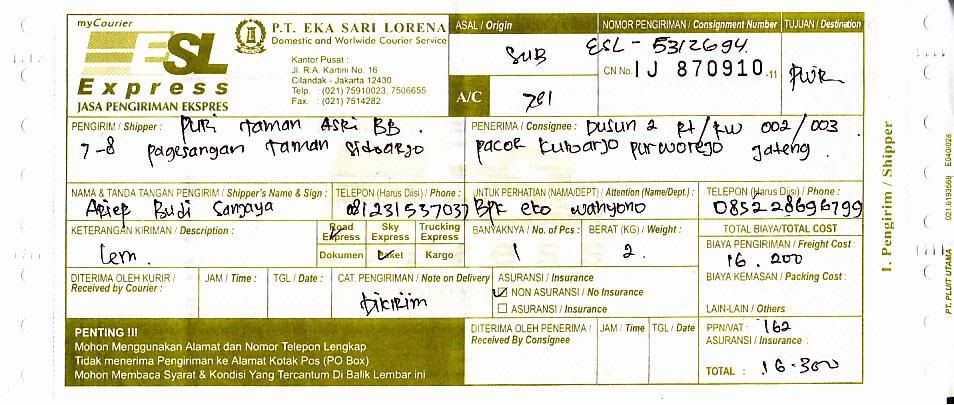 myCourier
ESL
Express
JASA PENGIRIMAN EKSPRES
P.T. EKA SARI LORENA
Domestic and Worlwide Courier Service
Kantor Pusat :
Jl. R.A. Kartini No. 16
Cilandak - Jakarta 12430
Telp. : (021) 75910023, 7506655
Fax. : (021) 7514282
ASAL / Origin
SUB
A/C
781
NOMOR PENGIRIMAN / Consignment Number
ESL - 5312694
CN No. IJ 870910.11
TUJUAN / Destination
PWR
PENGIRIM / Shipper : PURI taman ASRI BB
7-8 pagesangan taman sidoarjo
PENERIMA / Consignee : DUSUN 2 Rt/RW 002/003
pacor kutoarjo purworejo jateng
NAMA & TANDA TANGAN PENGIRIM / Shipper's Name & Sign :
Arief Budi Sanjaya
TELEPON (Harus Diisi) / Phone :
081231537037
UNTUK PERHATIAN (NAMA/DEPT) / Attention (Name/Dept.) :
BPK eko wahyono
TELEPON (Harus Diisi) / Phone :
085228696799
KETERANGAN KIRIMAN / Description :
Lem
Road Express
Sky Express
Trucking Express
Dokumen
Paket
Kargo
BANYAKNYA / No. of Pcs :
1
BERAT (KG) / Weight :
2
TOTAL BIAYA/TOTAL COST
BIAYA PENGIRIMAN / Freight Cost :
16.200
BIAYA KEMASAN / Packing Cost :
LAIN-LAIN / Others
PPN/VAT : 162
ASURANSI / Insurance :
TOTAL : 16.300
DITERIMA OLEH KURIR /
Received by Courier :
JAM / Time :
TGL / Date :
CAT. PENGIRIMAN / Note on Delivery
DIKIRIM
ASURANSI / Insurance
NON ASURANSI / No Insurance
ASURANSI / Insurance
PENTING !!!
Mohon Menggunakan Alamat dan Nomor Telepon Lengkap
Tidak menerima Pengiriman ke Alamat Kotak Pos (PO Box)
Mohon Membaca Syarat & Kondisi Yang Tercantum Di Balik Lembar ini
DITERIMA OLEH PENERIMA /
Received By Consignee
JAM / Time
TGL / Date
I. Pengirim / Shipper
PT. PLUIT UTAMA 021.6193568 E040/028